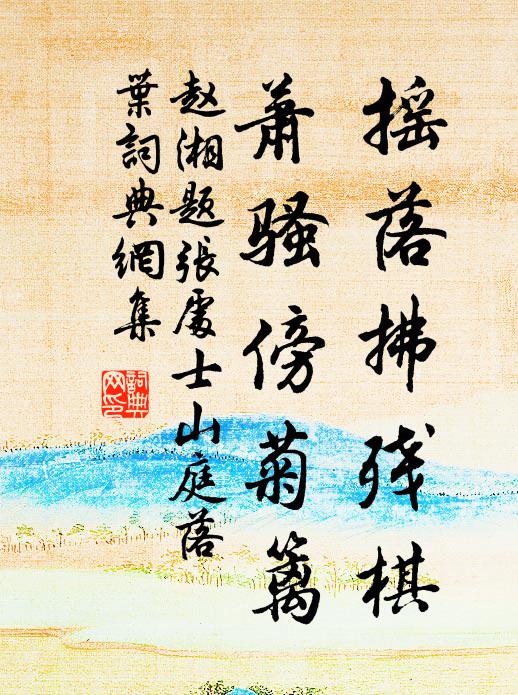 摇落拂残棋
萧骚傍菊篱
赵湘题张處士山庭落
葉詞典網集
詞典網印